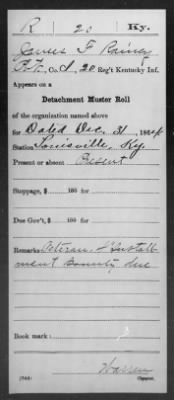 R 20 Ky.
James F Rainey
Pvt., Co. I, 20 Reg't Kentucky Inf.
Appears on a
Detachment Muster Roll
of the organization named above
for Dated Dec. 31, 1864
Station Louisville, Ky.
Present or absent Present
Stoppage, $ 100 for
Due Gov't, $ 100 for
Remarks: Veteran. Install
ment Bounty due
Book mark:
Warren
Copyist.